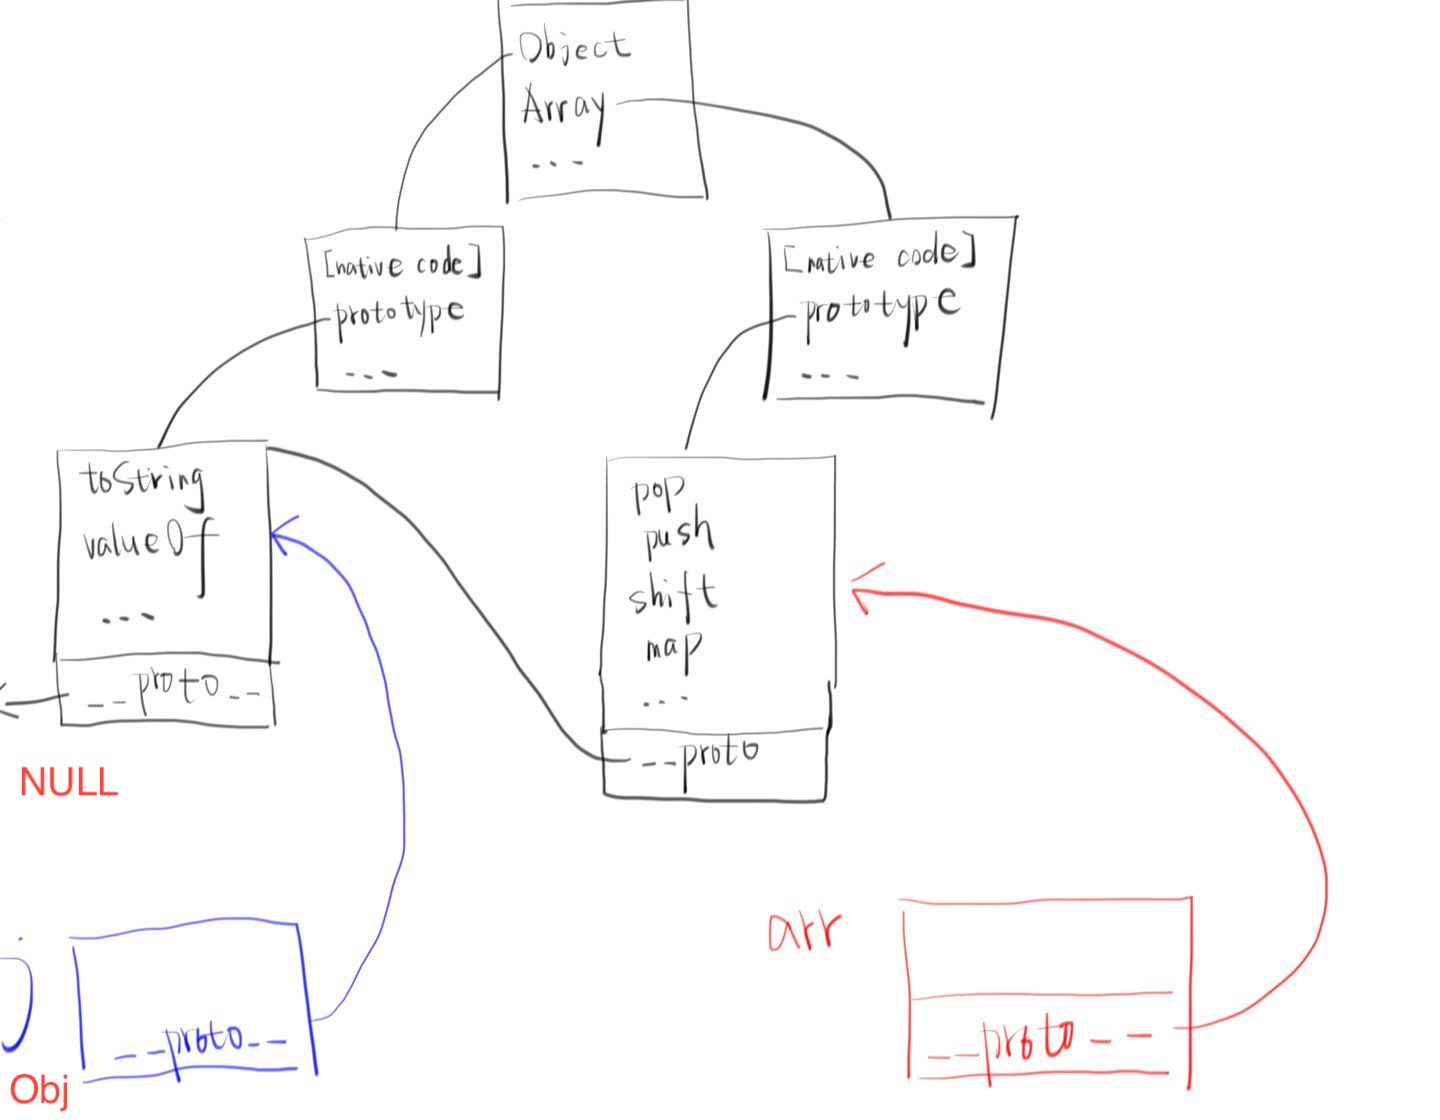 Object
Array
...
[native code]
prototype
---
[native code]
prototype
---
toString
valueOf
...
__proto__
NULL
pop
push
shift
map
...
--proto
j
__proto__
Obj
arr
__proto__